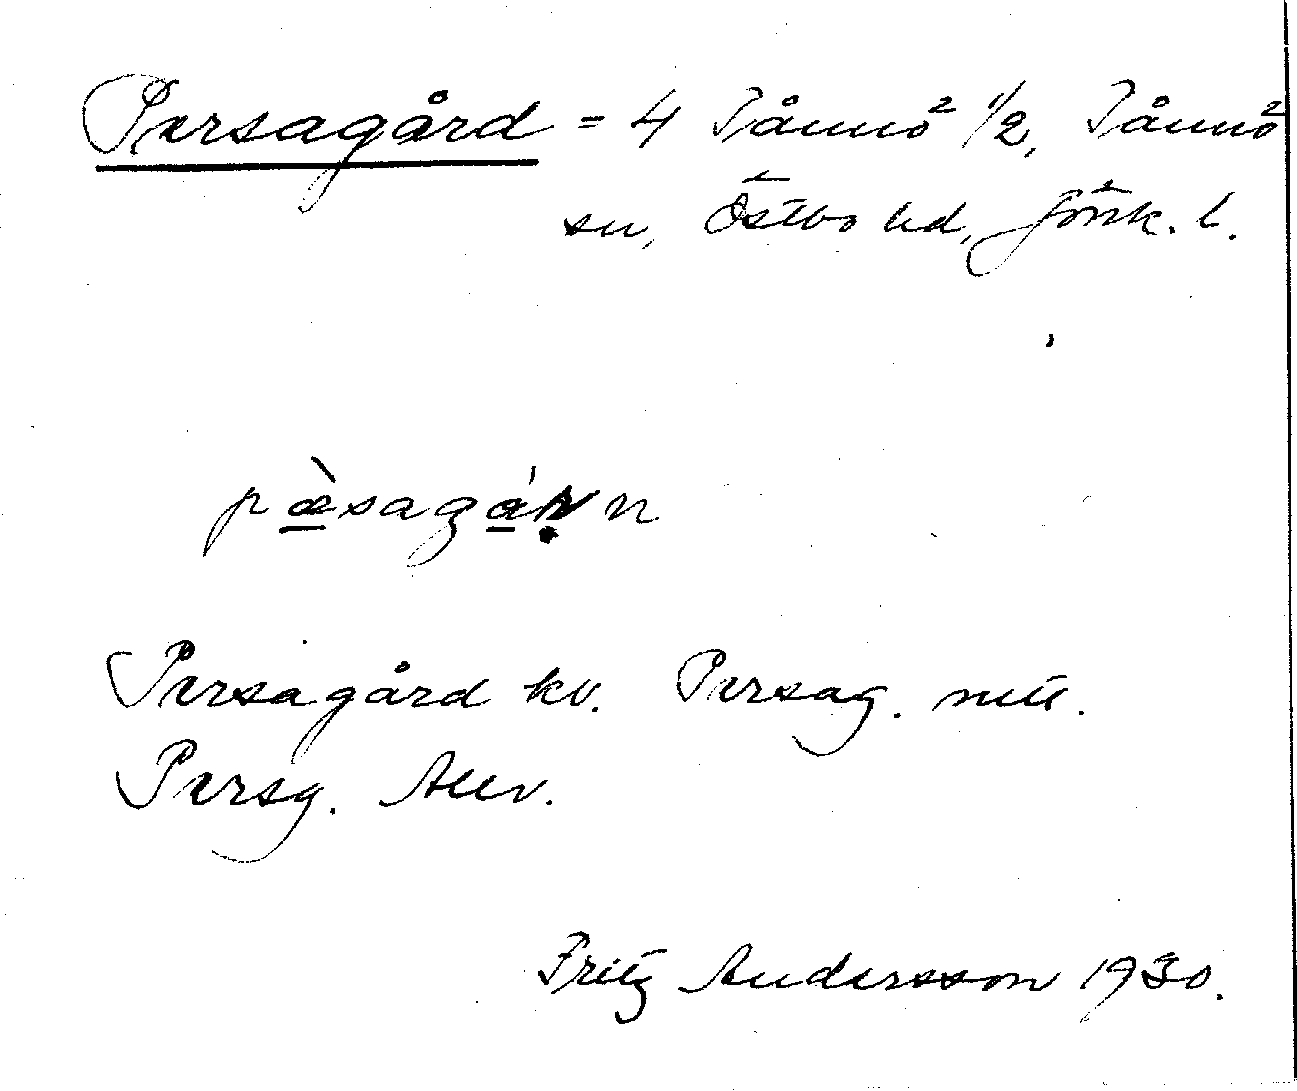 Persagård = 4 Tånnö 1/2, Tånnö
sn, Östbo hd, Jönk. l.
pæ̀sagáṛn
Persagård kv. Persag. mtl.
Persg.
Fritz Andersson 1930.